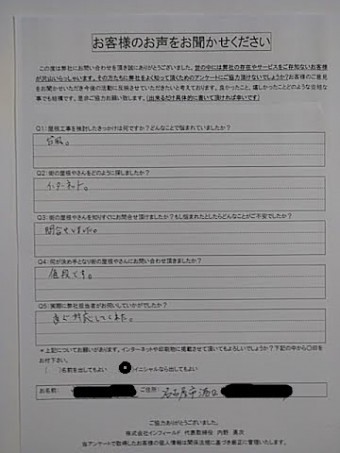 お客様のお声をお聞かせください
この度は弊社にお問い合わせを頂き誠にありがとうございました。世の中には弊社の存在やサービスをご存知ないお客様
が沢山いらっしゃいます。その方たちに弊社をよく知って頂くためのアンケートにご協力頂けないでしょうか?お客様のご意見
をお聞かせいただき今後の活動に反映させていただきたいと考えております。良かったこと、嬉しかったことどのような些細な
事でも結構です。是非ご協力お願い致します。(出来るだけ具体的に書いて頂ければ幸いです)
Q1:屋根工事を検討したきっかけは何ですか?どんなことで悩まれていましたか?
台風。
Q2:街の屋根やさんをどのように探しましたか?
インターネット。
Q3:街の屋根やさんを知りすぐにお問合せ頂けましたか?もし悩まれたとしたらどんなことがご不安でしたか?
問合せしました。
Q4:何が決め手となり街の屋根やさんにお問い合わせ頂きましたか?
値段です。
Q5:実際に弊社担当者がお伺いしていかがでしたか?
対応してくれた。
*上記についてお願いがあります。インターネットや印刷物に掲載させて頂いてもよろしいでしょうか?下記の中から〇印を
お付下さい。
( )名前を出してもよい イニシャルなら出してもよい
お名前: ご住所: 名古屋市港区
ご協力ありがとうございました。
株式会社インフィールド 代表取締役 内野 真次
当アンケートで取得したお客様の個人情報は関係法規に基づき厳正に管理いたします。